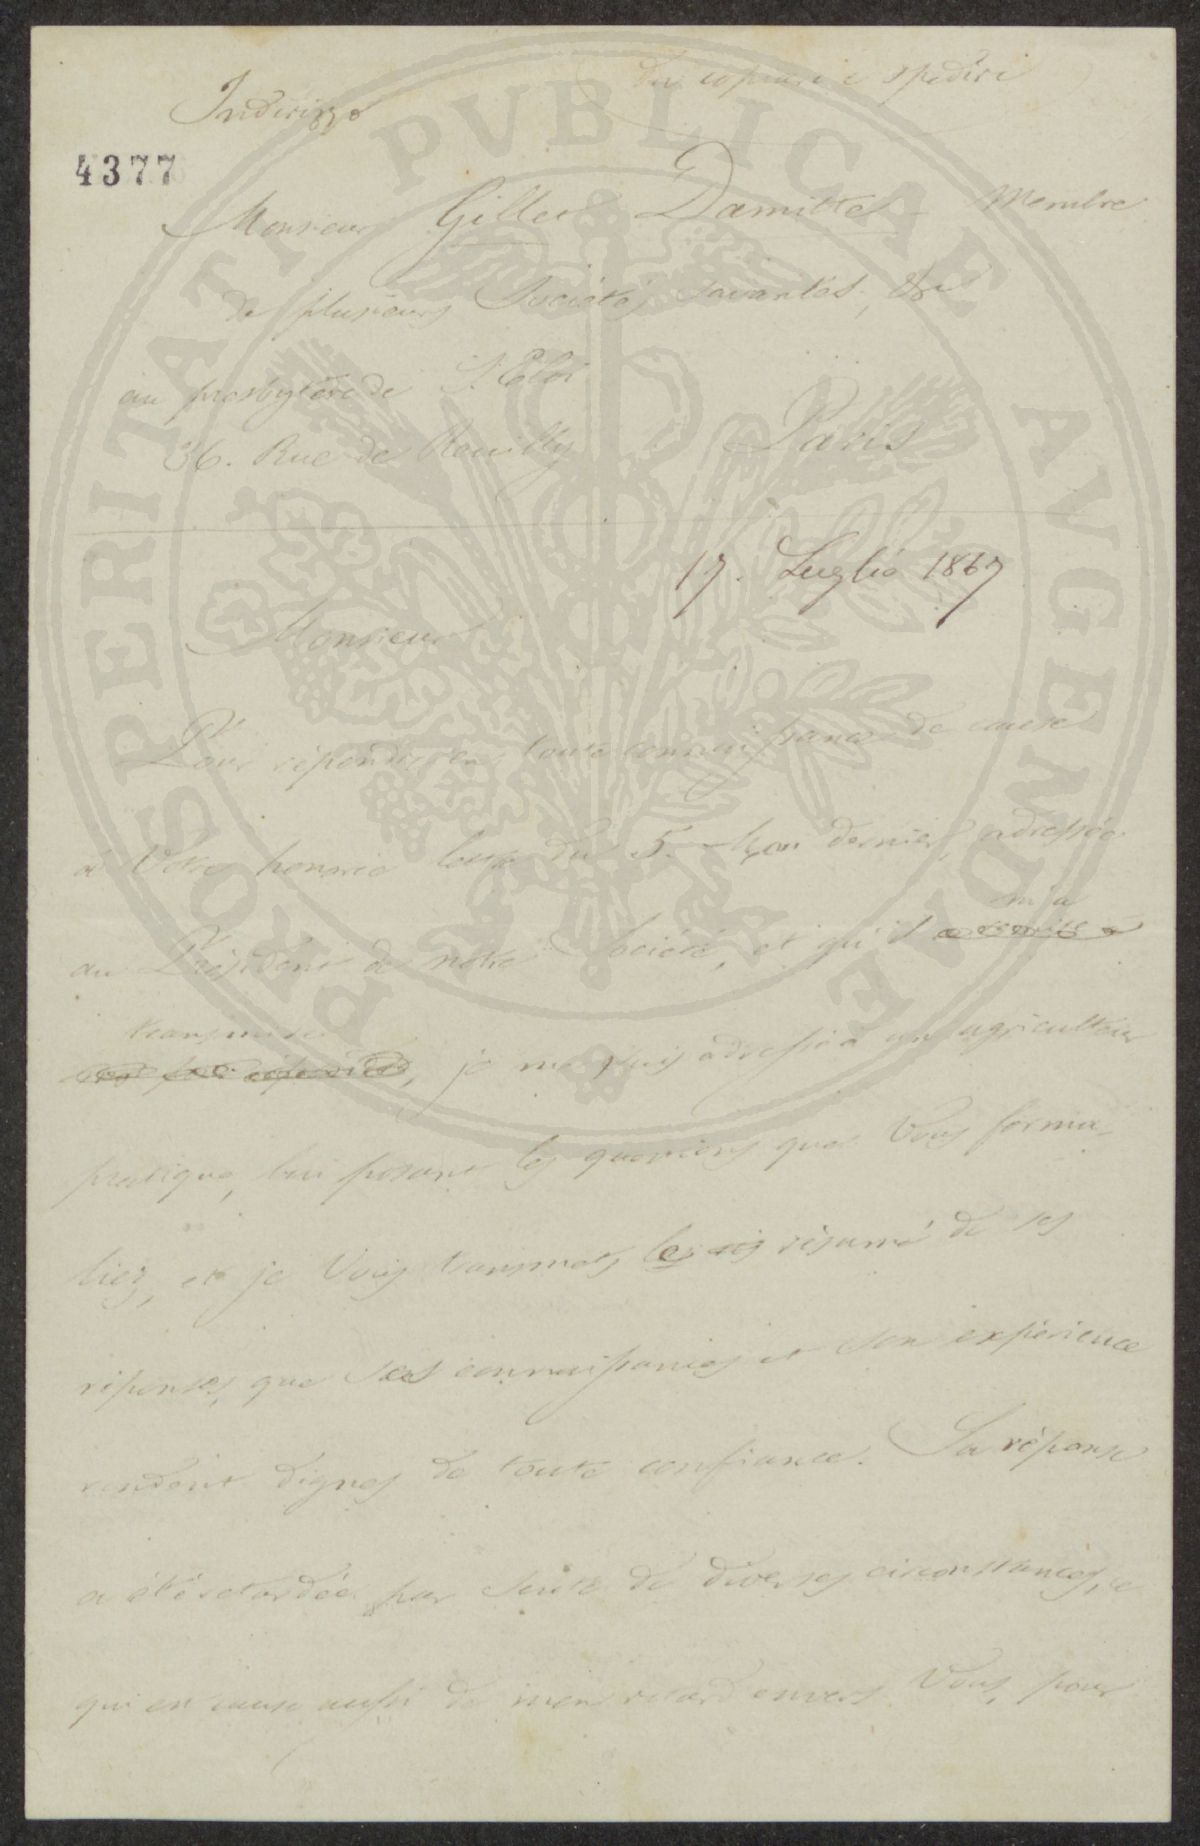 da copiare e spedire
Indirizzo
4377
Monsieur Gillet Damitte Membre
de plusieurs Sociétés savantes, &c
au presbytère de St Eloi
36. Rue de Reuilly Paris
17. Luglio 1867
Monsieur
Pour répondre en toute connaissance de cause
à Votre honorée lettre du 5. Mai dernier, adressée
au Président de notre Société, et qu'il m'a
transmise, je me suis adressé à un agriculteur
pratique, lui posant les questions que Vous formu-
liez, et je Vous transmets le résumé de ses
réponses, que ses connaissances et son expérience
rendent dignes de toute confiance. Sa réponse
a été retardée par suite de diverses circonstances, ce
qui est cause aussi de mon retard envers Vous, pour
PROSPERITATI PVBLICAE AVGENDAE